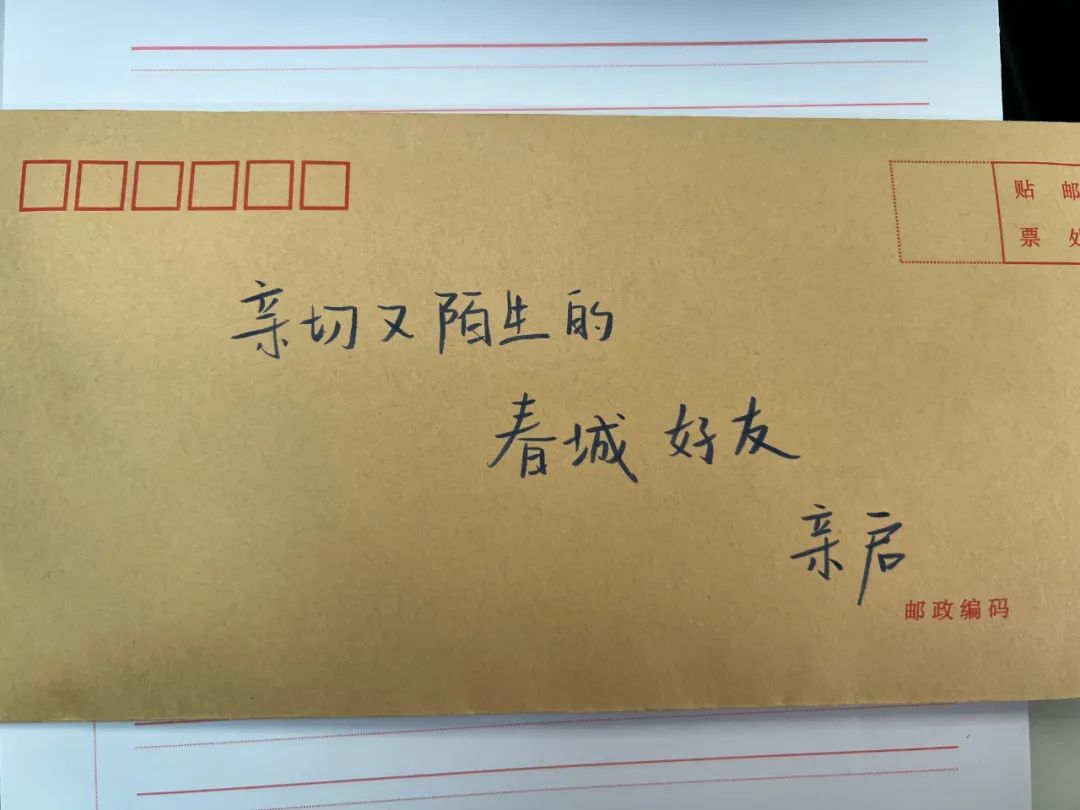 贴 邮
票 处
亲切又陌生的
春城 好友
亲启
邮政编码